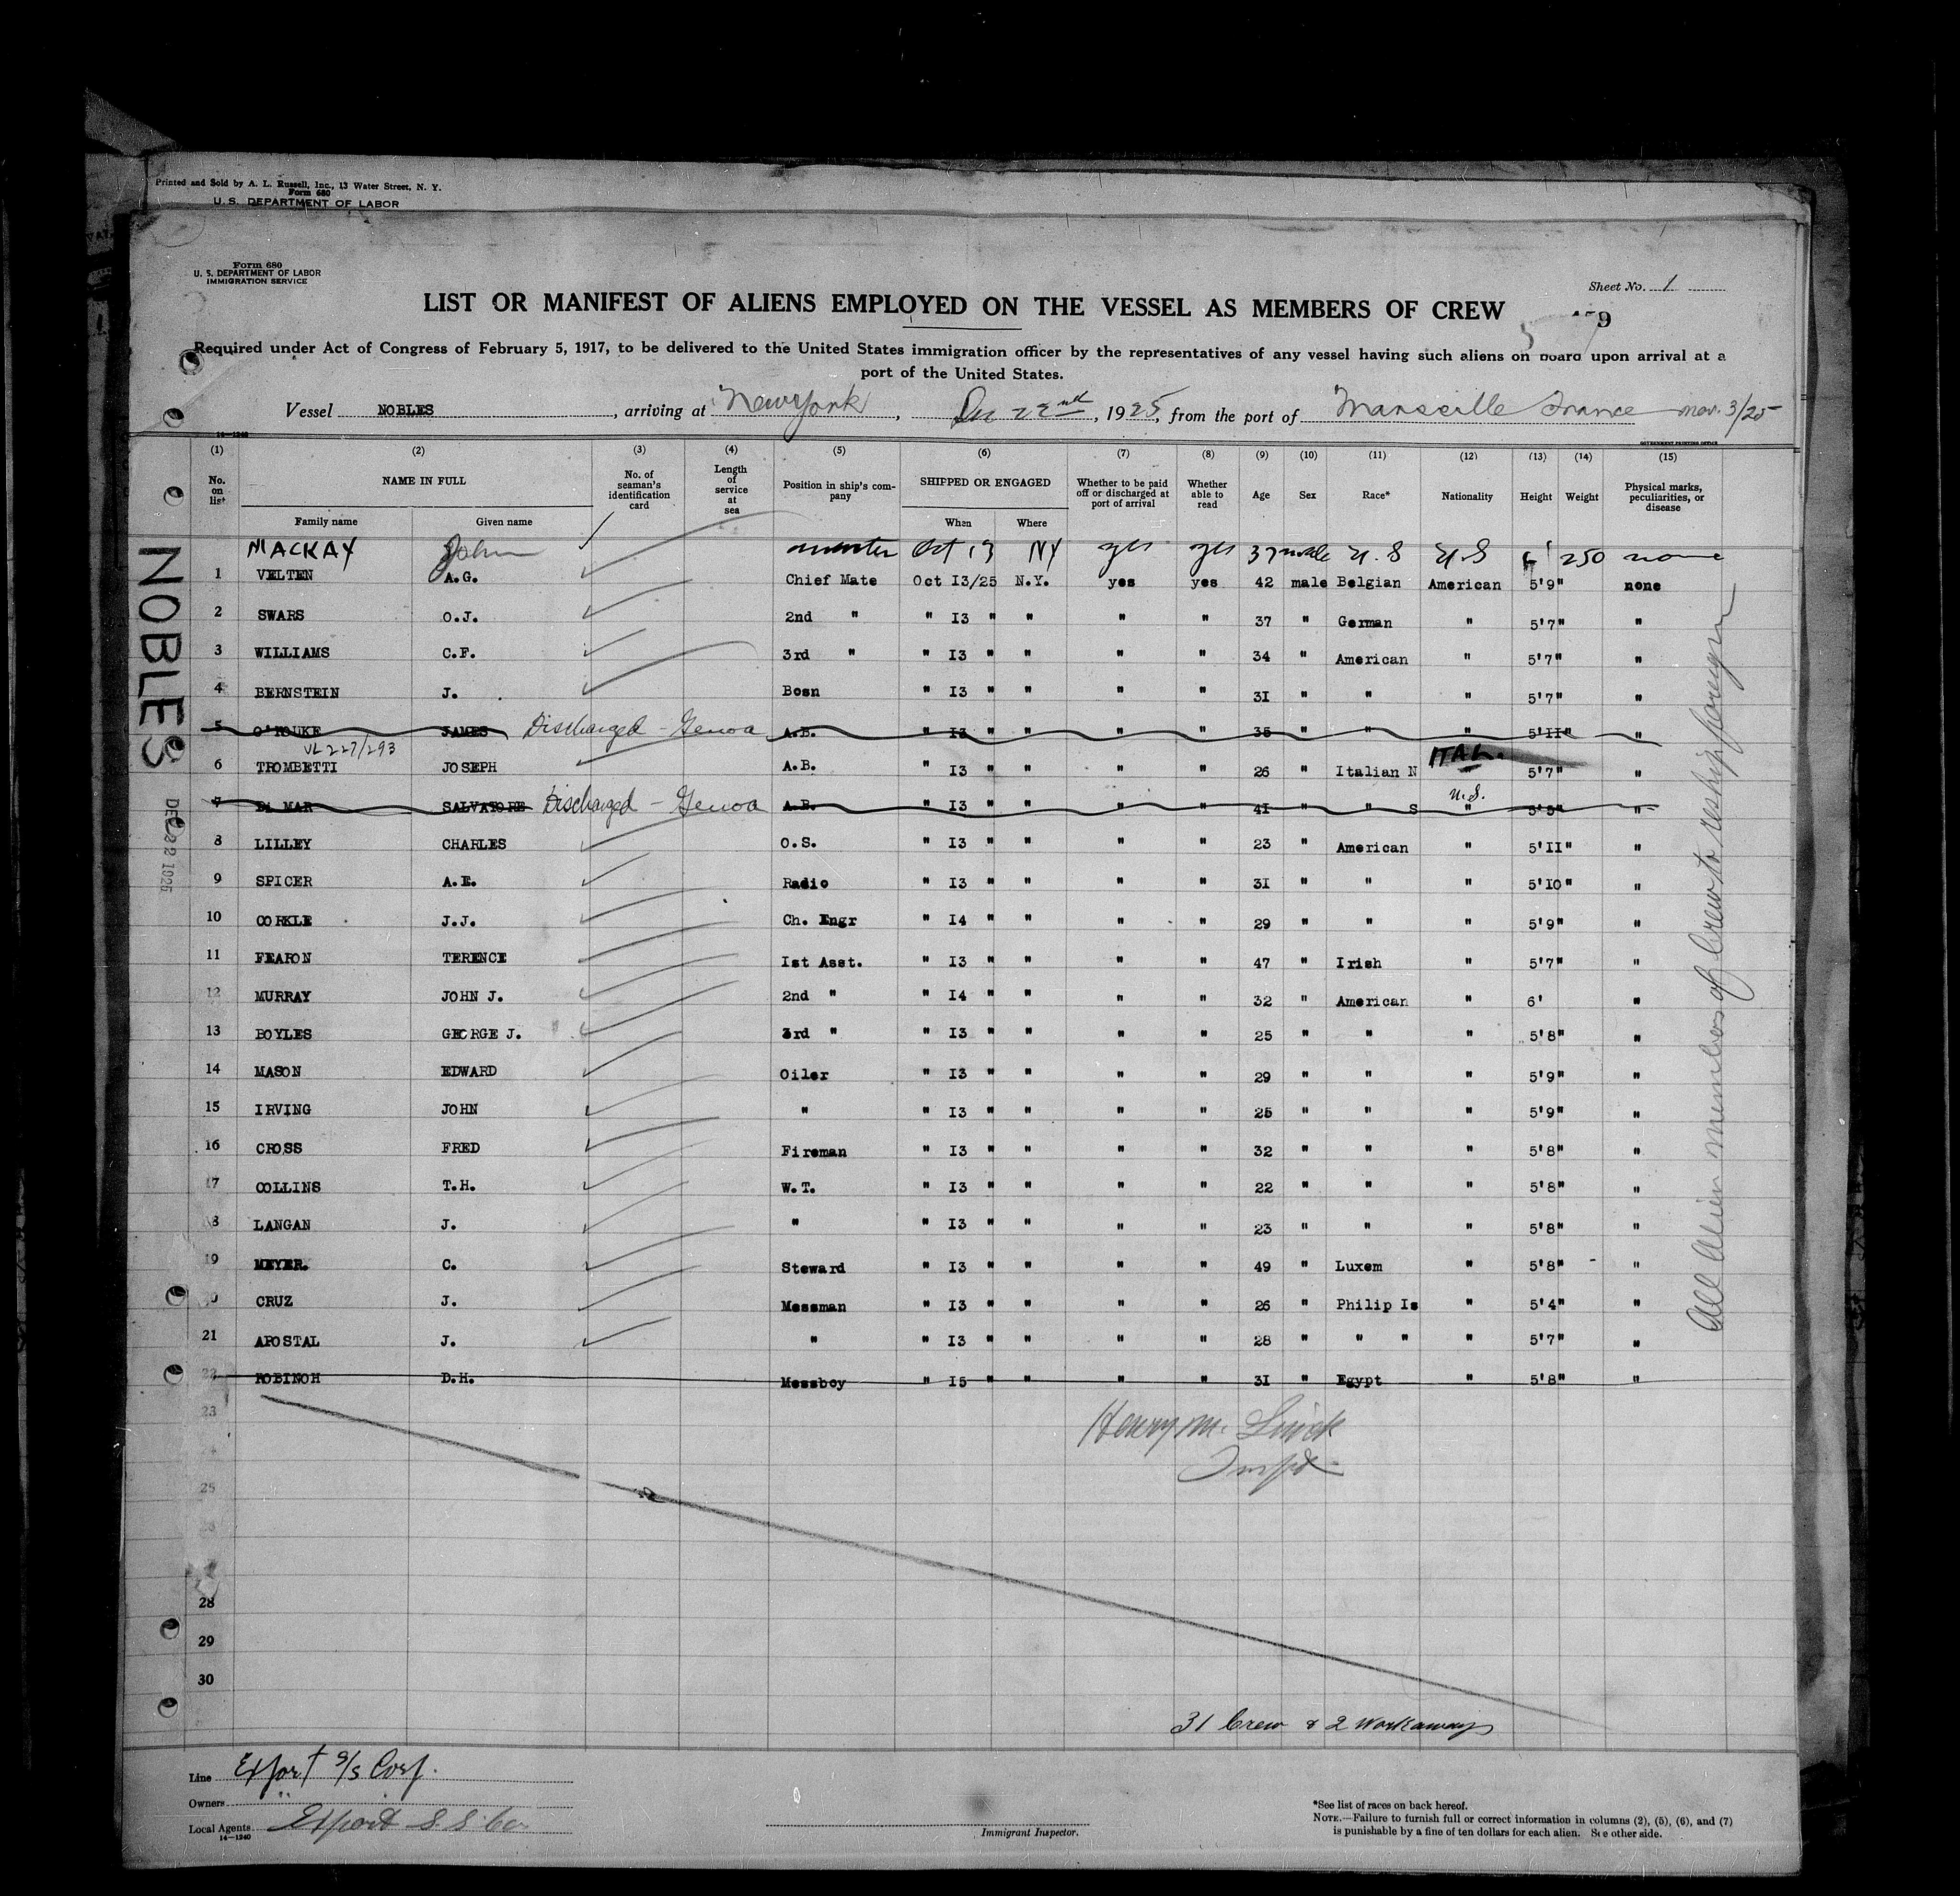 Printed and Sold by A. L. Russell, Inc., 13 Water Street, N. Y.
Form 680
U. S. DEPARTMENT OF LABOR
Form 680
U. S. DEPARTMENT OF LABOR
IMMIGRATION SERVICE
Sheet No. 1
LIST OR MANIFEST OF ALIENS EMPLOYED ON THE VESSEL AS MEMBERS OF CREW
Required under Act of Congress of February 5, 1917, to be delivered to the United States immigration officer by the representatives of any vessel having such aliens on board upon arrival at a
port of the United States.
Vessel NOBLES, arriving at New York, Dec 22nd, 1925, from the port of Marseille France nov. 3/25
14—1240 GOVERNMENT PRINTING OFFICE
(1) (2) (3) (4) (5) (6) (7) (8) (9) (10) (11) (12) (13) (14) (15)
No. on list NAME IN FULL No. of seaman's identification card Length of service at sea Position in ship's company SHIPPED OR ENGAGED Whether to be paid off or discharged at port of arrival Whether able to read Age Sex Race* Nationality Height Weight Physical marks, peculiarities, or disease
Family name Given name When Where
MACKAY John master Oct 13 NY yes yes 37 male U.S U.S 6' 250 none
1 VELTEN A.G. Chief Mate Oct I3/25 N.Y. yes yes 42 male Belgian American 5'9" none
2 SWARS O.J. 2nd " " I3 " " " " 37 " German " 5'7" "
3 WILLIAMS C.F. 3rd " " I3 " " " " 34 " American " 5'7" "
4 BERNSTEIN J. Bosn " I3 " " " " 3I " " " 5'7" "
5 O'ROUKE JAMES Discharged - Genoa A.B. " I3 " " " " 35 " " " 5'II" "
VL 227/293
6 TROMBETTI JOSEPH A.B. " I3 " " " " 26 " Italian N ITAL. 5'7" "
7 Di MAR SALVATORE Discharged - Genoa A.B. " I3 " " " " 4I " " S U.S. " 5'5" "
8 LILLEY CHARLES O.S. " I3 " " " " 23 " American " 5'II" "
9 SPICER A.E. Radio " I3 " " " " 3I " " " 5'IO" "
10 CORKLE J.J. Ch. Engr " I4 " " " " 29 " " " 5'9" "
11 FEARON TERENCE Ist Asst. " I3 " " " " 47 " Irish " 5'7" "
12 MURRAY JOHN J. 2nd " " I4 " " " " 32 " American " 6' "
13 BOYLES GEORGE J. 3rd " " I3 " " " " 25 " " " 5'8" "
14 MASON EDWARD Oiler " I3 " " " " 29 " " " 5'9" "
15 IRVING JOHN " " I3 " " " " 25 " " " 5'9" "
16 CROSS FRED Fireman " I3 " " " " 32 " " " 5'8" "
17 COLLINS T.H. W.T. " I3 " " " " 22 " " " 5'8" "
18 LANGAN J. " " I3 " " " " 23 " " " 5'8" "
19 MEYER. C. Steward " I3 " " " " 49 " Luxem " 5'8" "
20 CRUZ J. Messman " I3 " " " " 26 " Philip Is " 5'4" "
21 APOSTAL J. " " I3 " " " " 28 " " " " 5'7" "
22 ROBINOH D.H. Messboy " I5 " " " " 3I " Egypt " 5'8" "
23
24
25
26
28
29
30
Henry M.
Inspt.
31 Crew & 2 Workaways
NOBLES
DEC 22 1925
All alien members of crew to reship foreign
Line Export S/S Corp.
Owners "
Local Agents Export S.S. Co.
14—1240
Immigrant Inspector.
*See list of races on back hereof.
NOTE.—Failure to furnish full or correct information in columns (2), (5), (6), and (7)
is punishable by a fine of ten dollars for each alien. See other side.